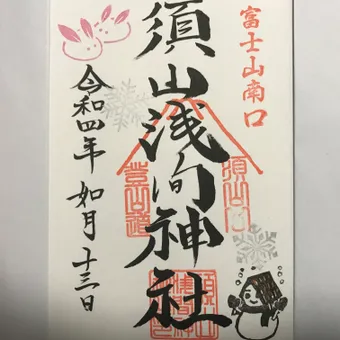 富士山南口
須山浅间神社
須山口
登山道
令和四年 如月 十三日